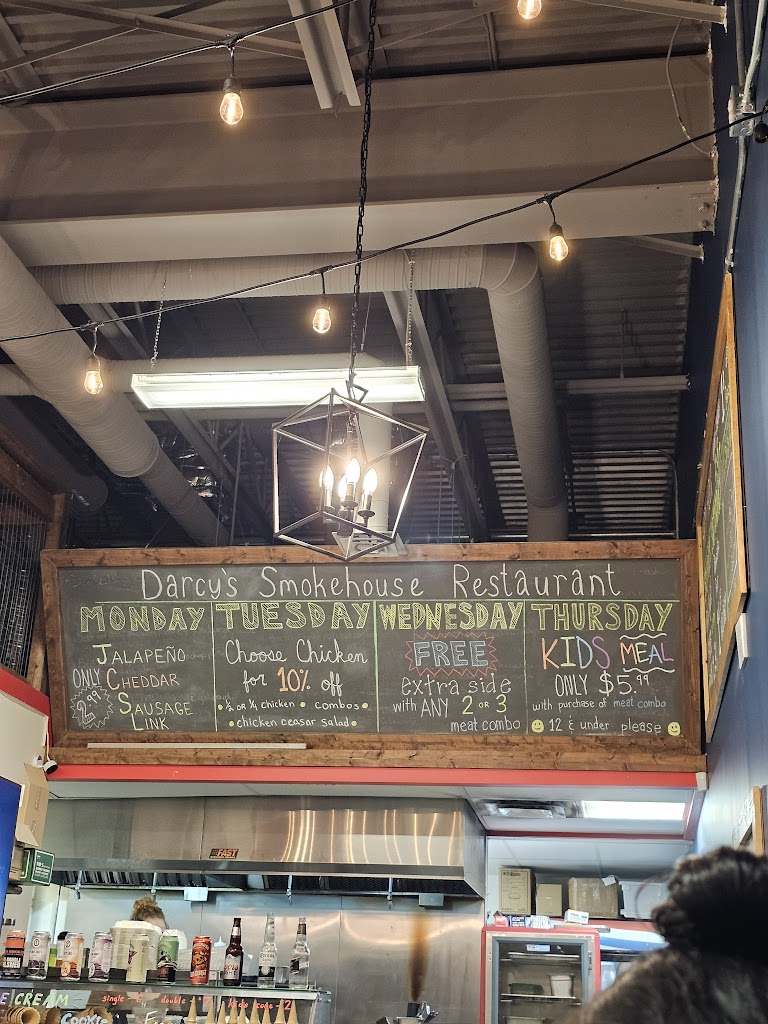 Darcy's Smokehouse Restaurant
MONDAY
JALAPEÑO
ONLY CHEDDAR
2.99 SAUSAGE
LINK
TUESDAY
Choose Chicken
for 10% off
• ½ or ¼ chicken • combos •
• chicken ceasar salad •
WEDNESDAY
FREE
extra side
with ANY 2 OR 3
meat combo
THURSDAY
KIDS MEAL
ONLY $5.99
with purchase of meat combo
12 & under please
FAST
CREAM single double Kids cone
Cookie